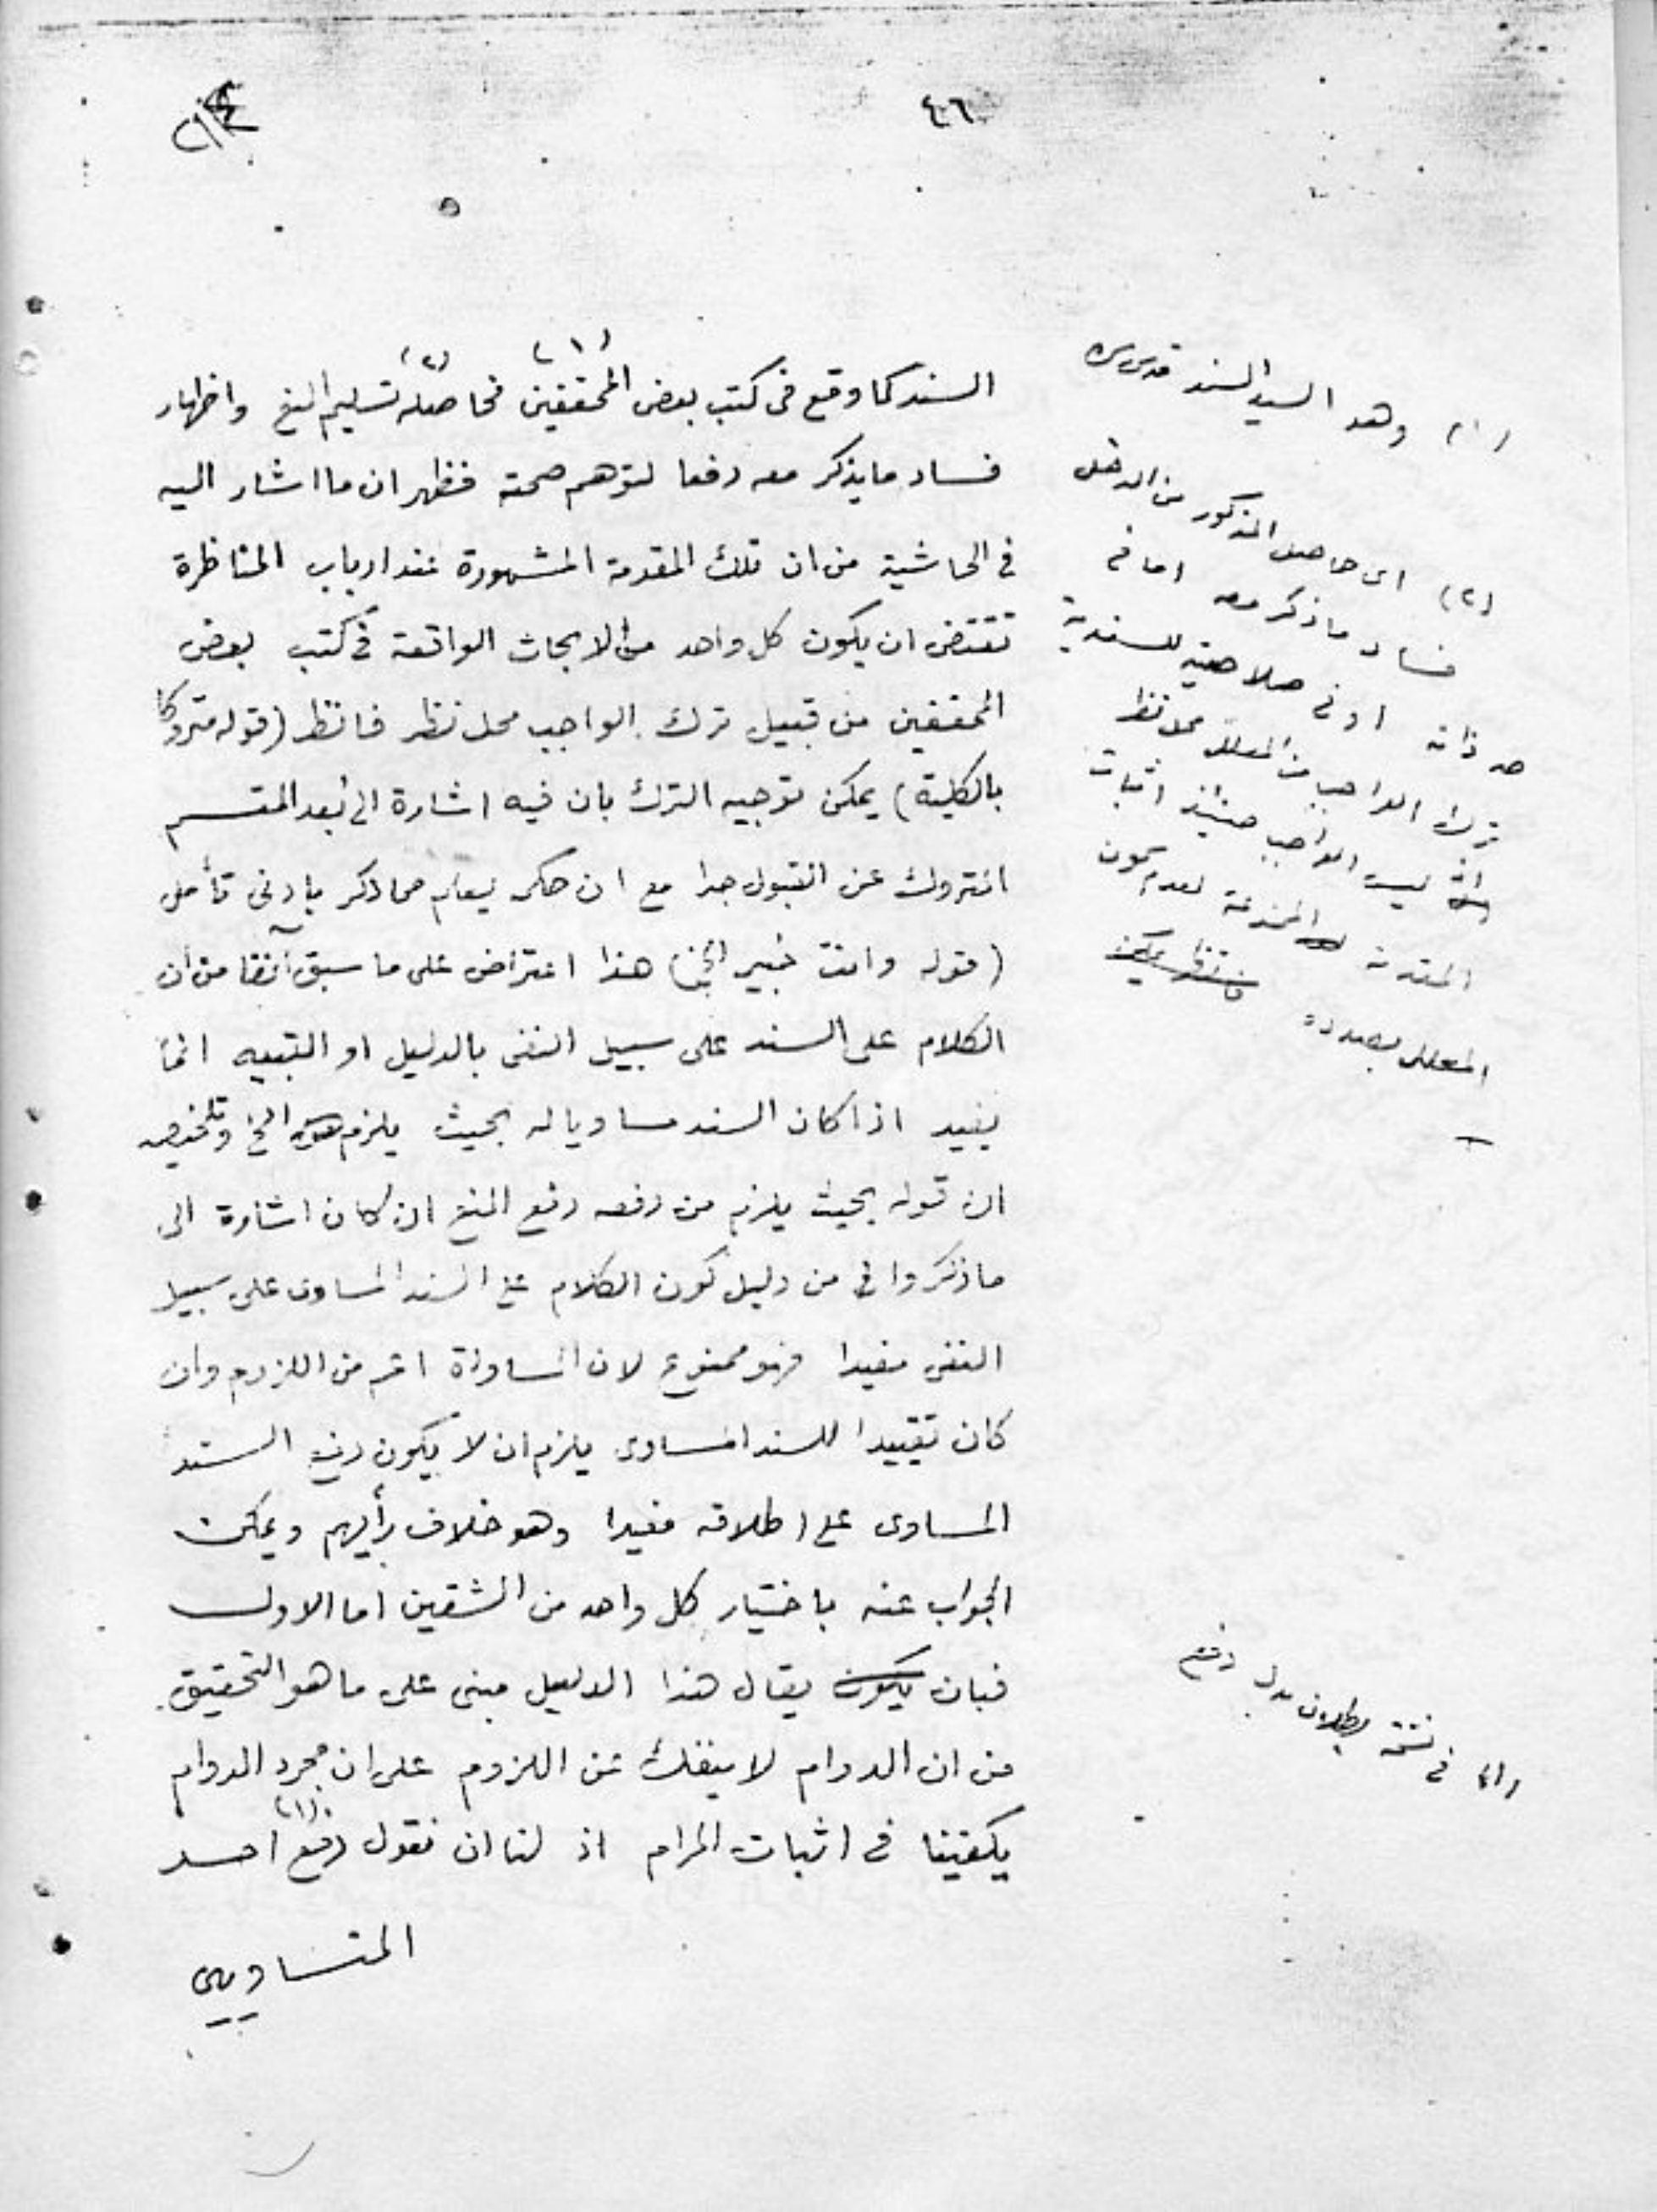 ٤٦
السند كما وقع فى كتب بعض المحققين (١) فحاصله (٢) تسليم المنع واظهار
فساد ما يذكر معه دفعا لتوهم صحته فظهر ان ما اشار اليه
فى الحاشية من ان تلك المقدمة المشهورة عند ارباب المناظرة
تقتضى ان يكون كل واحد من الابحاث الواقعة فى كتب بعض
المحققين من قبيل ترك الواجب محل نظر فانظر (قوله متروكا
بالكلية) يمكن توجيه الترك بان فيه اشارة الى بعد القسم
المتروك عن القبول جدا مع ان حكمه يعلم مما ذكر بادنى تأمل
(قوله وانت خبير الخ) هذا اعتراض على ما سبق آنفا من ان
الكلام على السند على سبيل النفى بالدليل او التنبيه انما
يفيد اذا كان السند مساويا له بحيث يلزم الخ وتلخيصه
ان قوله بحيث يلزم من دفعه دفع المنع ان كان اشارة الى
ما ذكروا فى من دليل كون الكلام على السند المساوى على سبيل
النفى مفيدا فهو ممنوع لان المساواة اعم من اللزوم وان
كان تقييدا للسند المساوى يلزم ان لا يكون دفع السند
المساوى على اطلاقه مفيدا وهو خلاف رأيهم ويمكن
الجواب عنه باختيار كل واحد من الشقين اما الاول
فبان يكون يقال هذا الدليل مبنى على ما هو التحقيق
من ان الدوام لا ينفك عن اللزوم على ان مجرد الدوام
يكفينا فى اثبات المرام اذ لنا ان نقول رفع (١) احد
المتساويين
(١) وهو السيد السند قدس سره
(٢) اى حاصل المذكور من الدخل
فساد ما ذكر معه اما فى
حد ذاته او فى صلاحيته للسندية
ترك الواجب من المعلل محل نظر
ليس الواجب حينئذ اثبات
المقدمة الممنوعة لعدم كون
المعلل بصدده
(١) فى نسخة بطلان بدل رفع